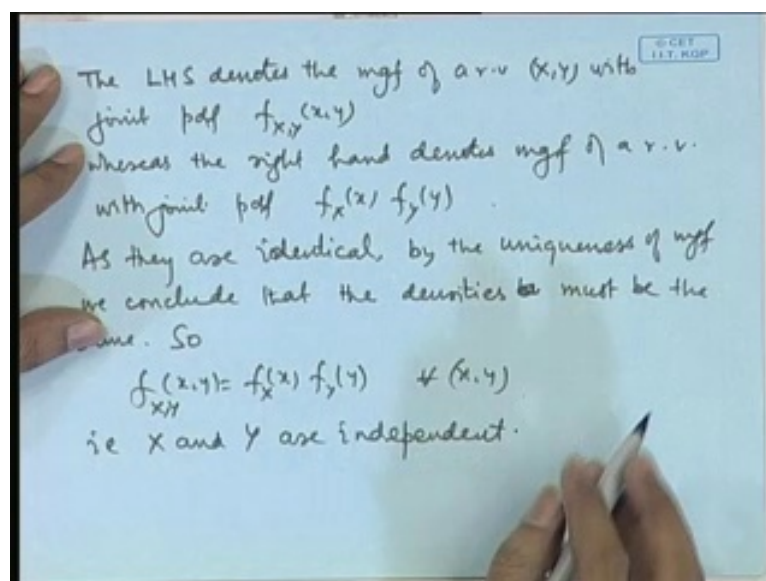 © CET
I.I.T. KGP
The LHS denotes the mgf of a r.v (X,Y) with
joint pdf f_{X,Y}(x,y)
whereas the right hand denotes mgf of a r.v.
with joint pdf f_X(x) f_Y(y).
As they are identical, by the uniqueness of mgf
we conclude that the densities must be the
same. So
f_{X,Y}(x,y) = f_X(x) f_Y(y) ∀ (x,y)
ie X and Y are independent.